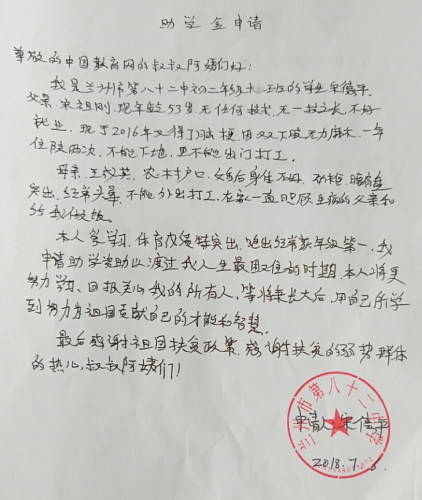 助学金申请
尊敬的中国教育网的叔叔阿姨们好:
我是兰州市第八十二中初二年级十一班的学生宋倍平,
父亲宋祖刚,现年龄53岁,无任何技术,无一技之长,不好
就业,现于2016年又得了脑梗,因双下肢无力麻木,一年
住院两次,不能下地,更不能出门打工。
母亲,王,农村户口,身体不好,劲椎,腰间盘
突出,经常头晕,不能外出打工,在家一直照顾生病的父亲和
给我做饭。
本人爱学习,体育成绩特突出,跑步经常年级第一,我
申请助学资助以渡过我人生最困难的时期,本人将更
努力学习,回报关心我的所有人,等将来长大后,用自己所学
到努力为祖国贡献自己的才能和智慧。
最后感谢祖国扶贫政策,感谢扶贫的弱势群体
的热心叔叔阿姨们!
兰州市第八十二中学
申请人:宋倍平
2018.7.6.